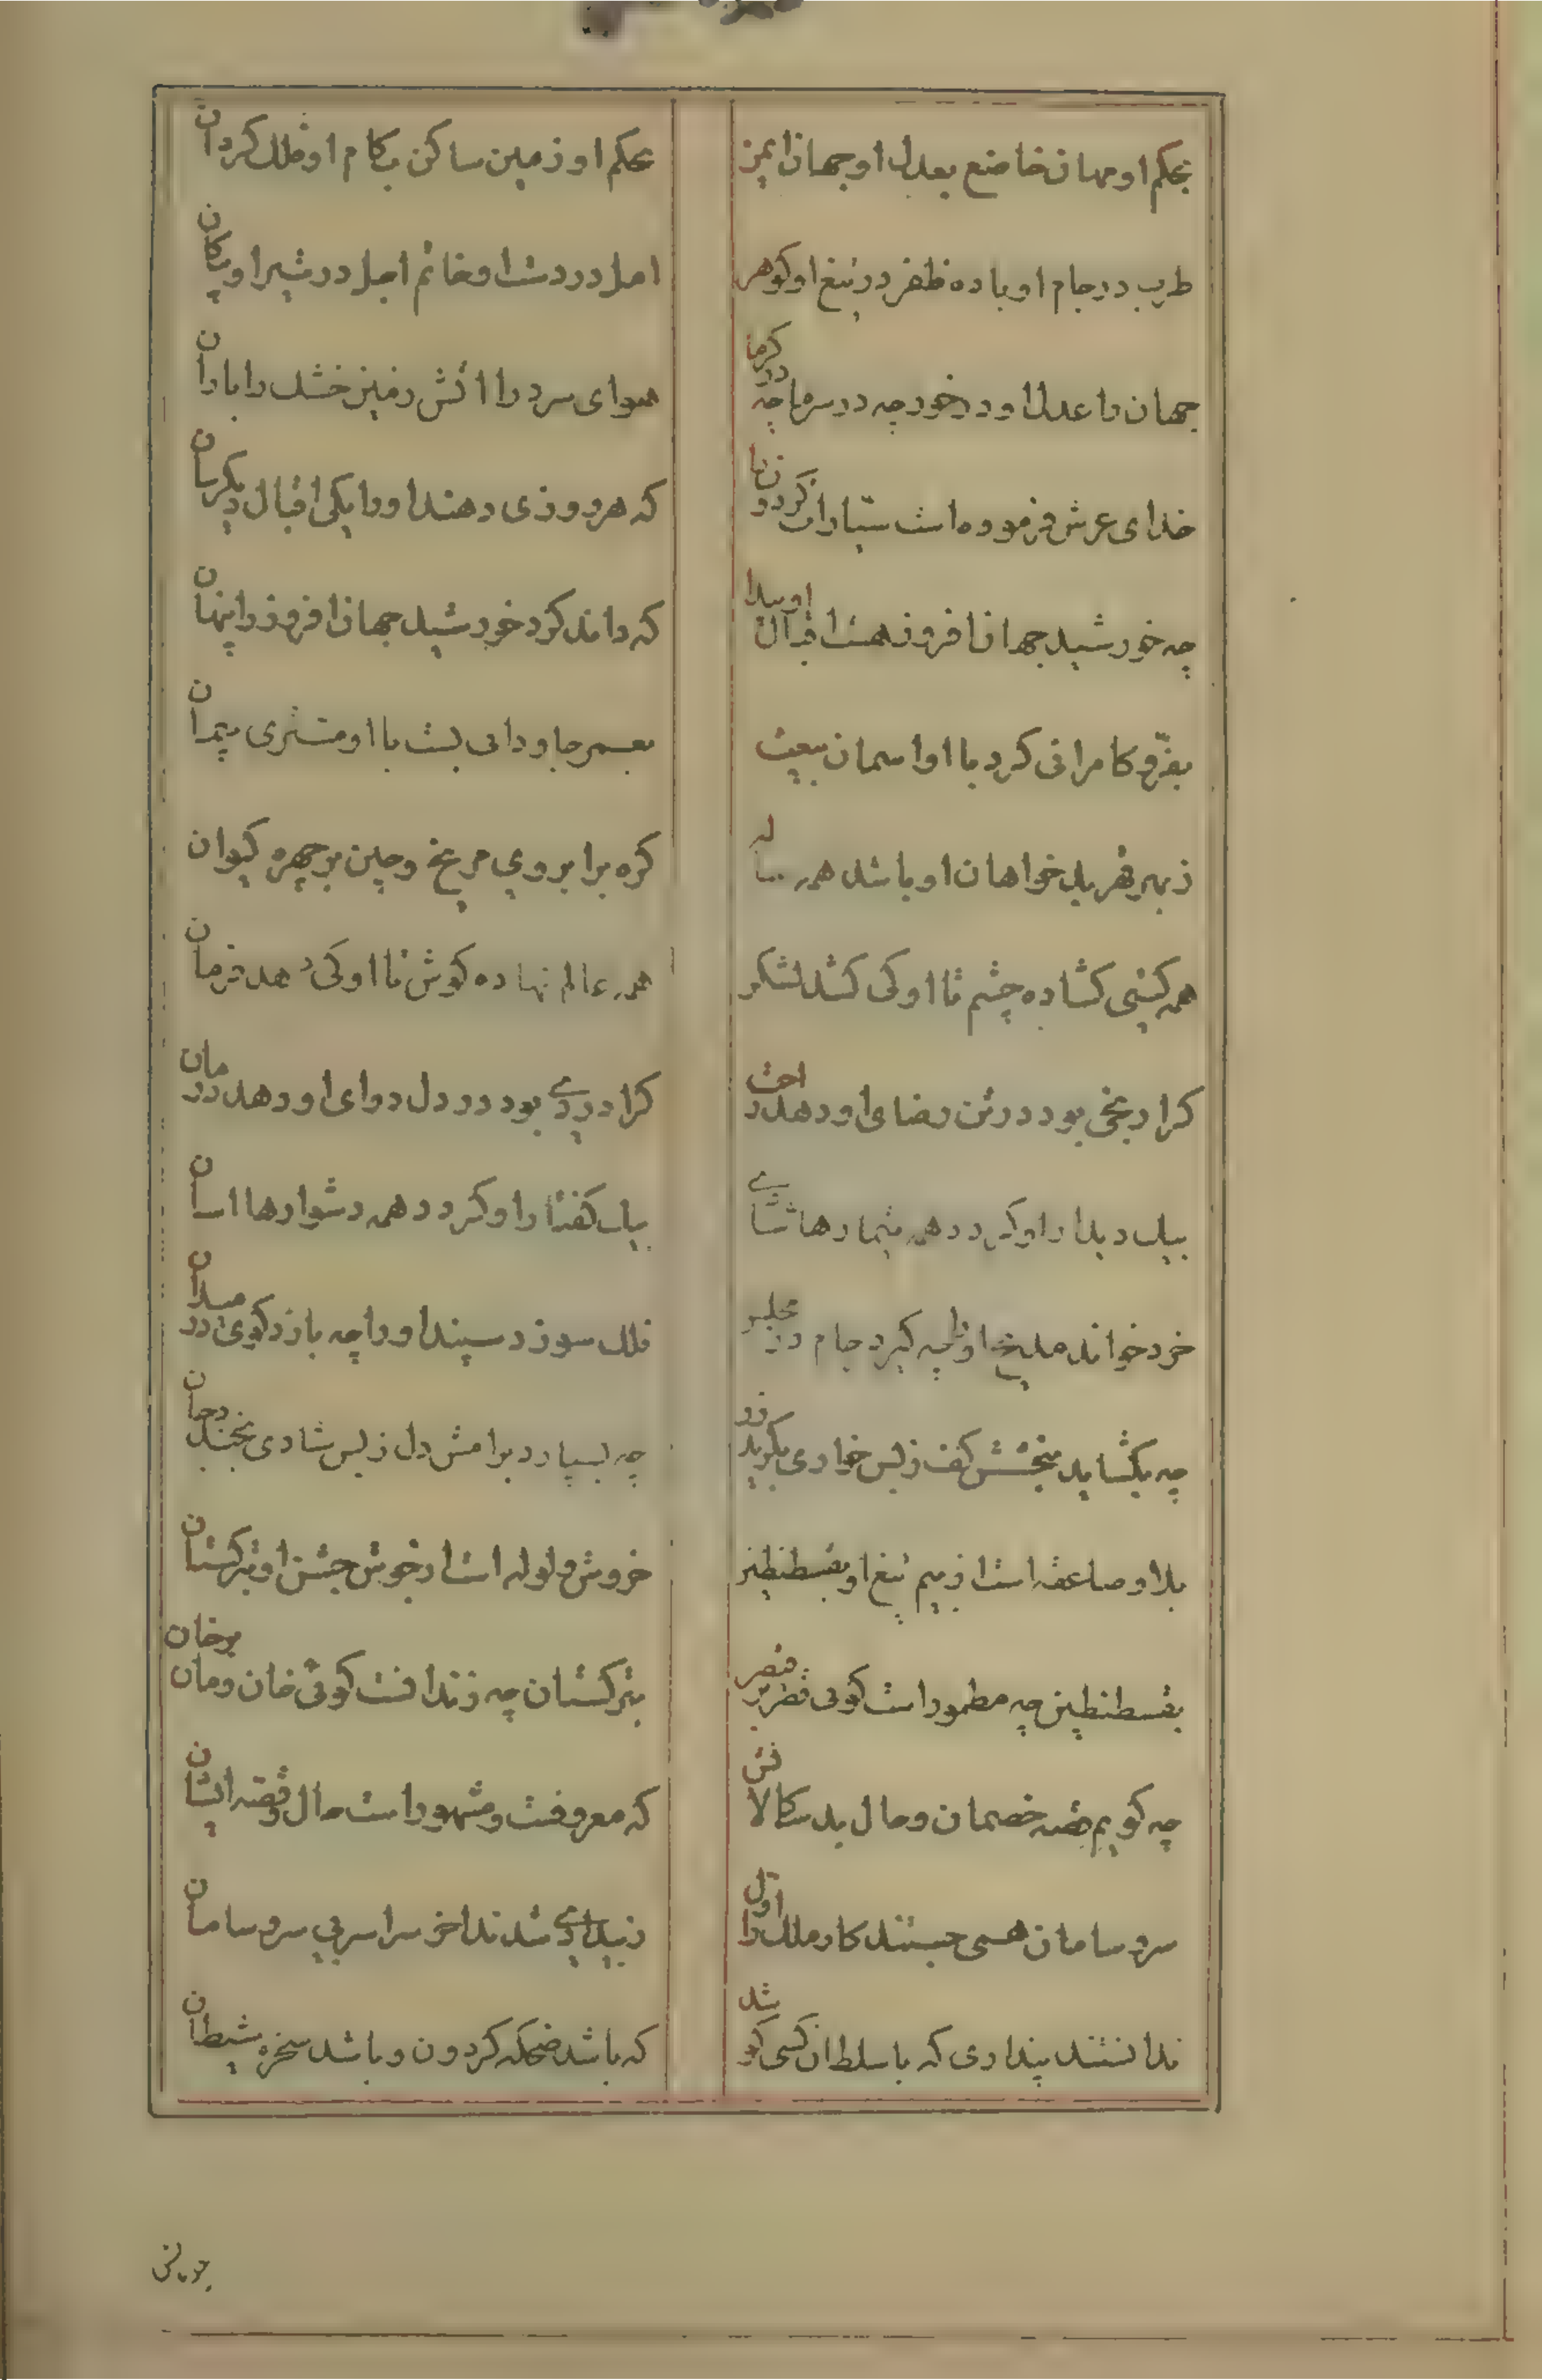 بحکم او مهان خاضع بعدل او جهان ایمن
بحکم او زمین ساکن بکام او فلک کردان
طرب در جام او باده ظفر در تیغ او کوهر
امل در دست او خاتم اجل در تیر او پیکان
جهان را عدل او در خورد چه در سرما چه در کرما
هوای سرد را اتش زمین خشک را باران
خدای عرش فرموده است سیارات کردونرا
که هر روزی دهند او را یکی اقبال دیکرسان
چه خورشید جهان افروز هست اقبال او پیدا
که داند کرد خورشید جهان افروز را پنهان
بفرّ و کامرانی کرد با او اسمان بیعت
بعمر جاودانی بست با او مشتری پیمان
ز بهر قهر بدخواهان او باشد همه ساله
کره بر ابروی مریخ و چین بر چهره کیوان
همه کیتی کشاده چشم تا او کی کشد لشکر
همه عالم نهاده کوش تا او کی دهد فرمان
کرا رنجی بود در تن رضای او دهد راحت
کرا دردی بود در دل دوای او دهد درمان
بیک دیدار او کردد همه تیمارها شادی
بیک کفتار او کردد همه دشوارها اسان
خرد خواند مدیح او را چه کیرد جام در مجلس
فلک سوزد سپند او را چه بازد کوی در میدان
چه بکشاید ببخشش کف ز بس خواری بکرید زر
چه بسپارد برامش دل ز بس شادی بخندد جان
بلا و صاعقه است از بیم تیغ او بقسطنطین
خروش و ولوله است از جوش جیش او بترکستان
بقسطنطین چه مطمور است کوئی قصر بر قیصر
بترکستان چه زندانست کوئی خان و مان بر خان
چه کویم قصه خصمان و حال بد سکالانش
که معروفست و مشهور است حال و قصه ایشان
سر و سامان همی جستند کار ملک را اول
ز بیدادی شدند اخر سراسر بی سر و سامان
ندانستند پنداری که با سلطان کسی کو شد
که باشد ضحکه کردون و باشد سخره شیطان